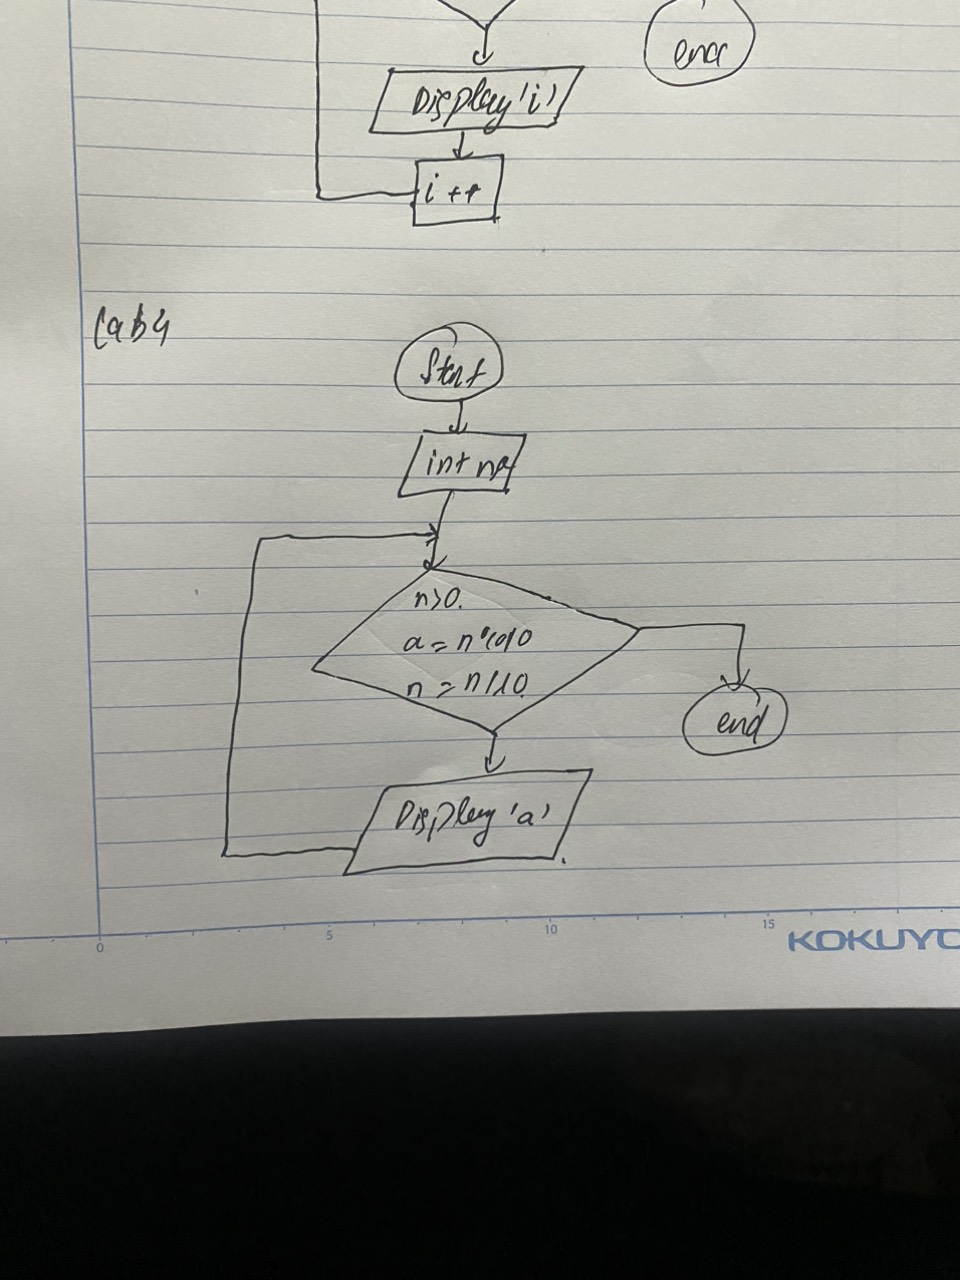 end
Display 'i'
i ++
Lab4
Start
int n
n>0.
a = n%10
n = n/10
end
Display 'a'
0 5 10 15
KOKUYO